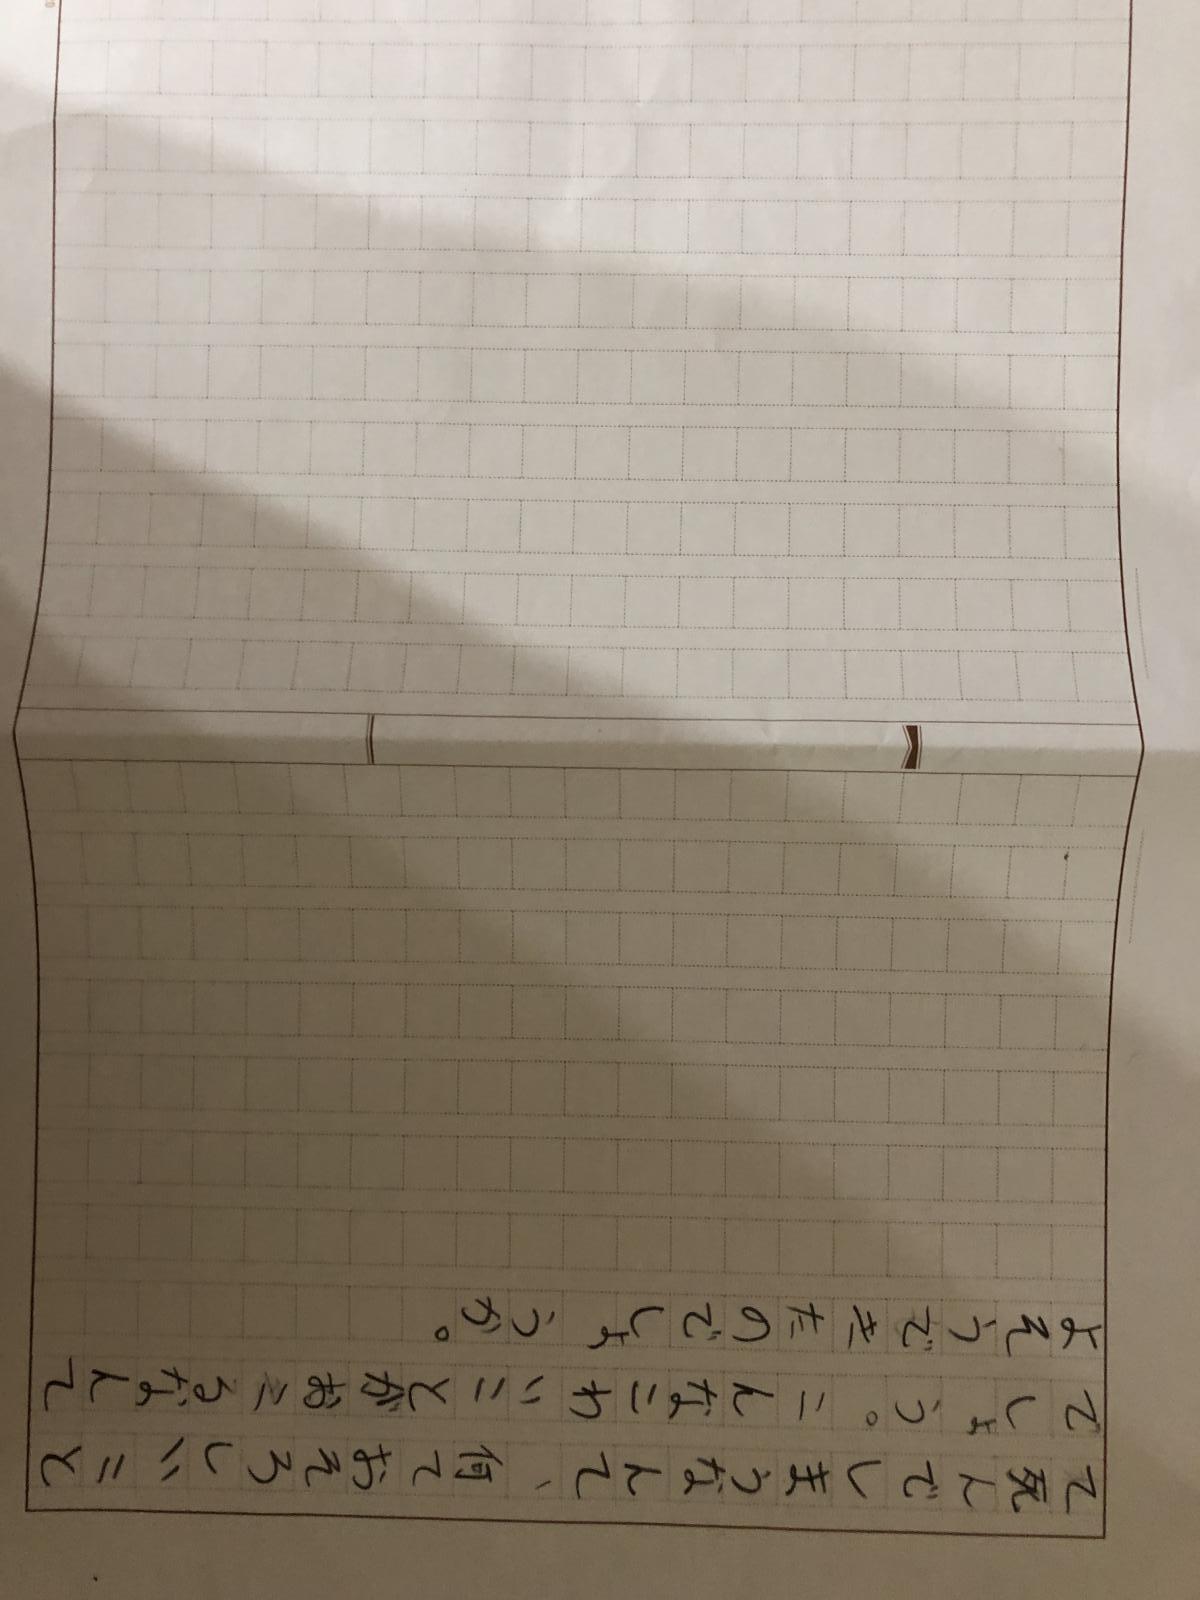 て死んでしまうなんて、何ておそろしいこと
でしょう。こんなこわいことがおこるなんて
よそうできたのでしょうか。